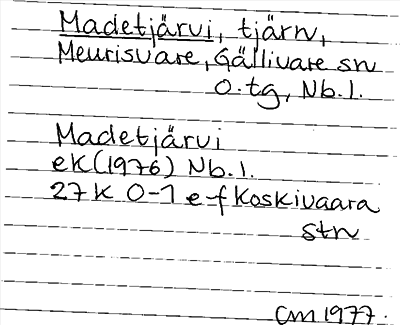 Madetjärvi, tjärn,
Meurisvare, Gällivare sn
O.tg, Nb.l.
Madetjärvi
ek(1976) Nb.l.
27K 0-1 e-f Koskivaara
stn
CM 1977.